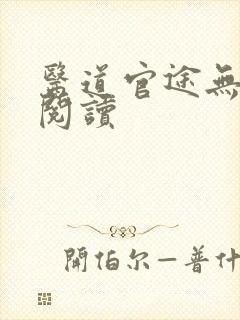 醫道官途無
閱讀
開伯尔—普什